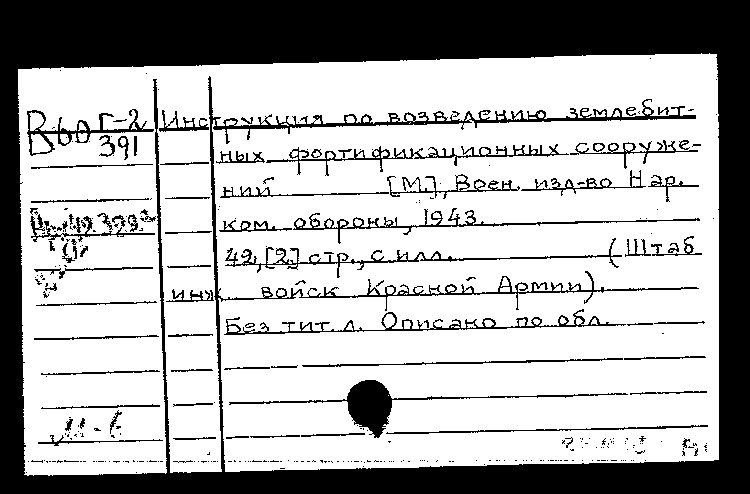 В60 Г-2
391
Инструкция по возведению землебит-
ных фортификационных сооруже-
ний [М.], Воен. изд-во Нар.
ком. обороны, 1943.
49,[2] стр., с илл. (Штаб
инж. войск Красной Армии).
Без тит. л. Описано по обл.